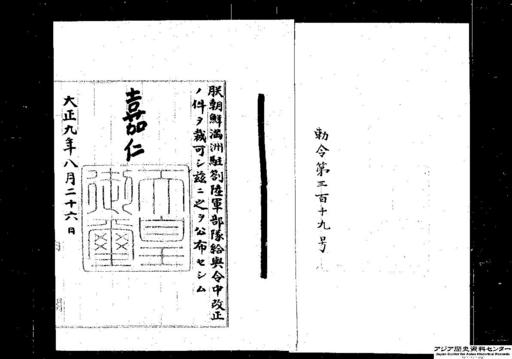 勅令第三百十九号
朕朝鮮満洲駐劄陸軍部隊給與令中改正
ノ件ヲ裁可シ茲ニ之ヲ公布セシム
嘉仁
天皇
御璽
大正九年八月二十六日
アジア歴史資料センター
Japan Center for Asian Historical Records